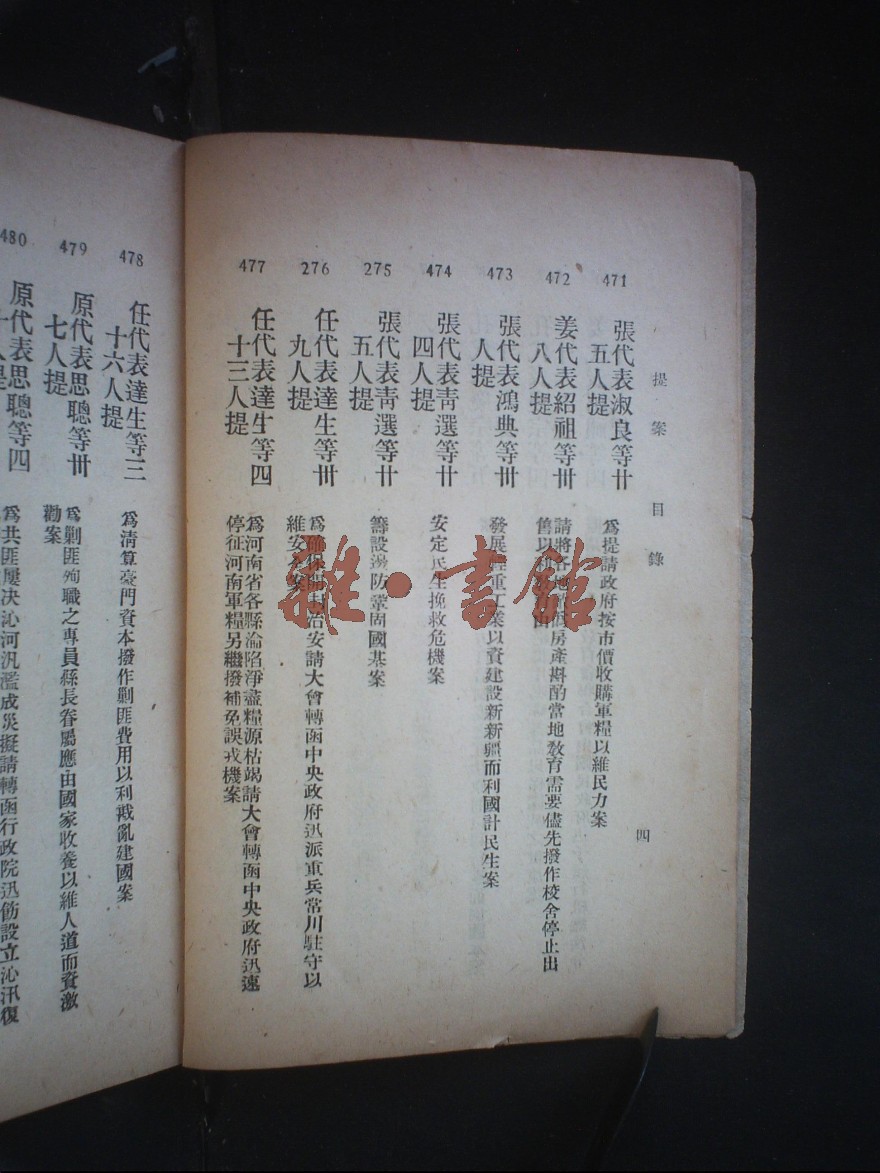 提案目錄
四
471
張代表淑良等廿
五人提
爲提請政府按市價收購軍糧以維民力案
472
姜代表紹祖等卅
八人提
請將各地 房產斟酌當地敎育需要儘先撥作校舍停止出
售以利
473
張代表鴻典等卅
人提
發展輕重工業以資建設新新疆而利國計民生案
474
張代表靑選等廿
四人提
安定民生挽救危機案
275
張代表靑選等廿
五人提
籌設邊防鞏固國基案
276
任代表達生等卅
九人提
爲確保開封治安請大會轉函中央政府迅派重兵常川駐守以
維安全案
477
任代表達生等四
十三人提
爲河南省各縣淪陷淨盡糧源枯竭請大會轉函中央政府迅速
停征河南軍糧另繼撥補免誤戎機案
478
任代表達生等三
十六人提
爲淸算豪門資本撥作剿匪費用以利戡亂建國案
479
原代表思聰等卅
七人提
爲剿匪殉職之專員縣長眷屬應由國家收養以維人道而資激
勸案
480
原代表思聰等四
十 人提
爲共匪屢决沁河汎濫成災擬請轉函行政院迅飭設立沁汛復
雜·書館